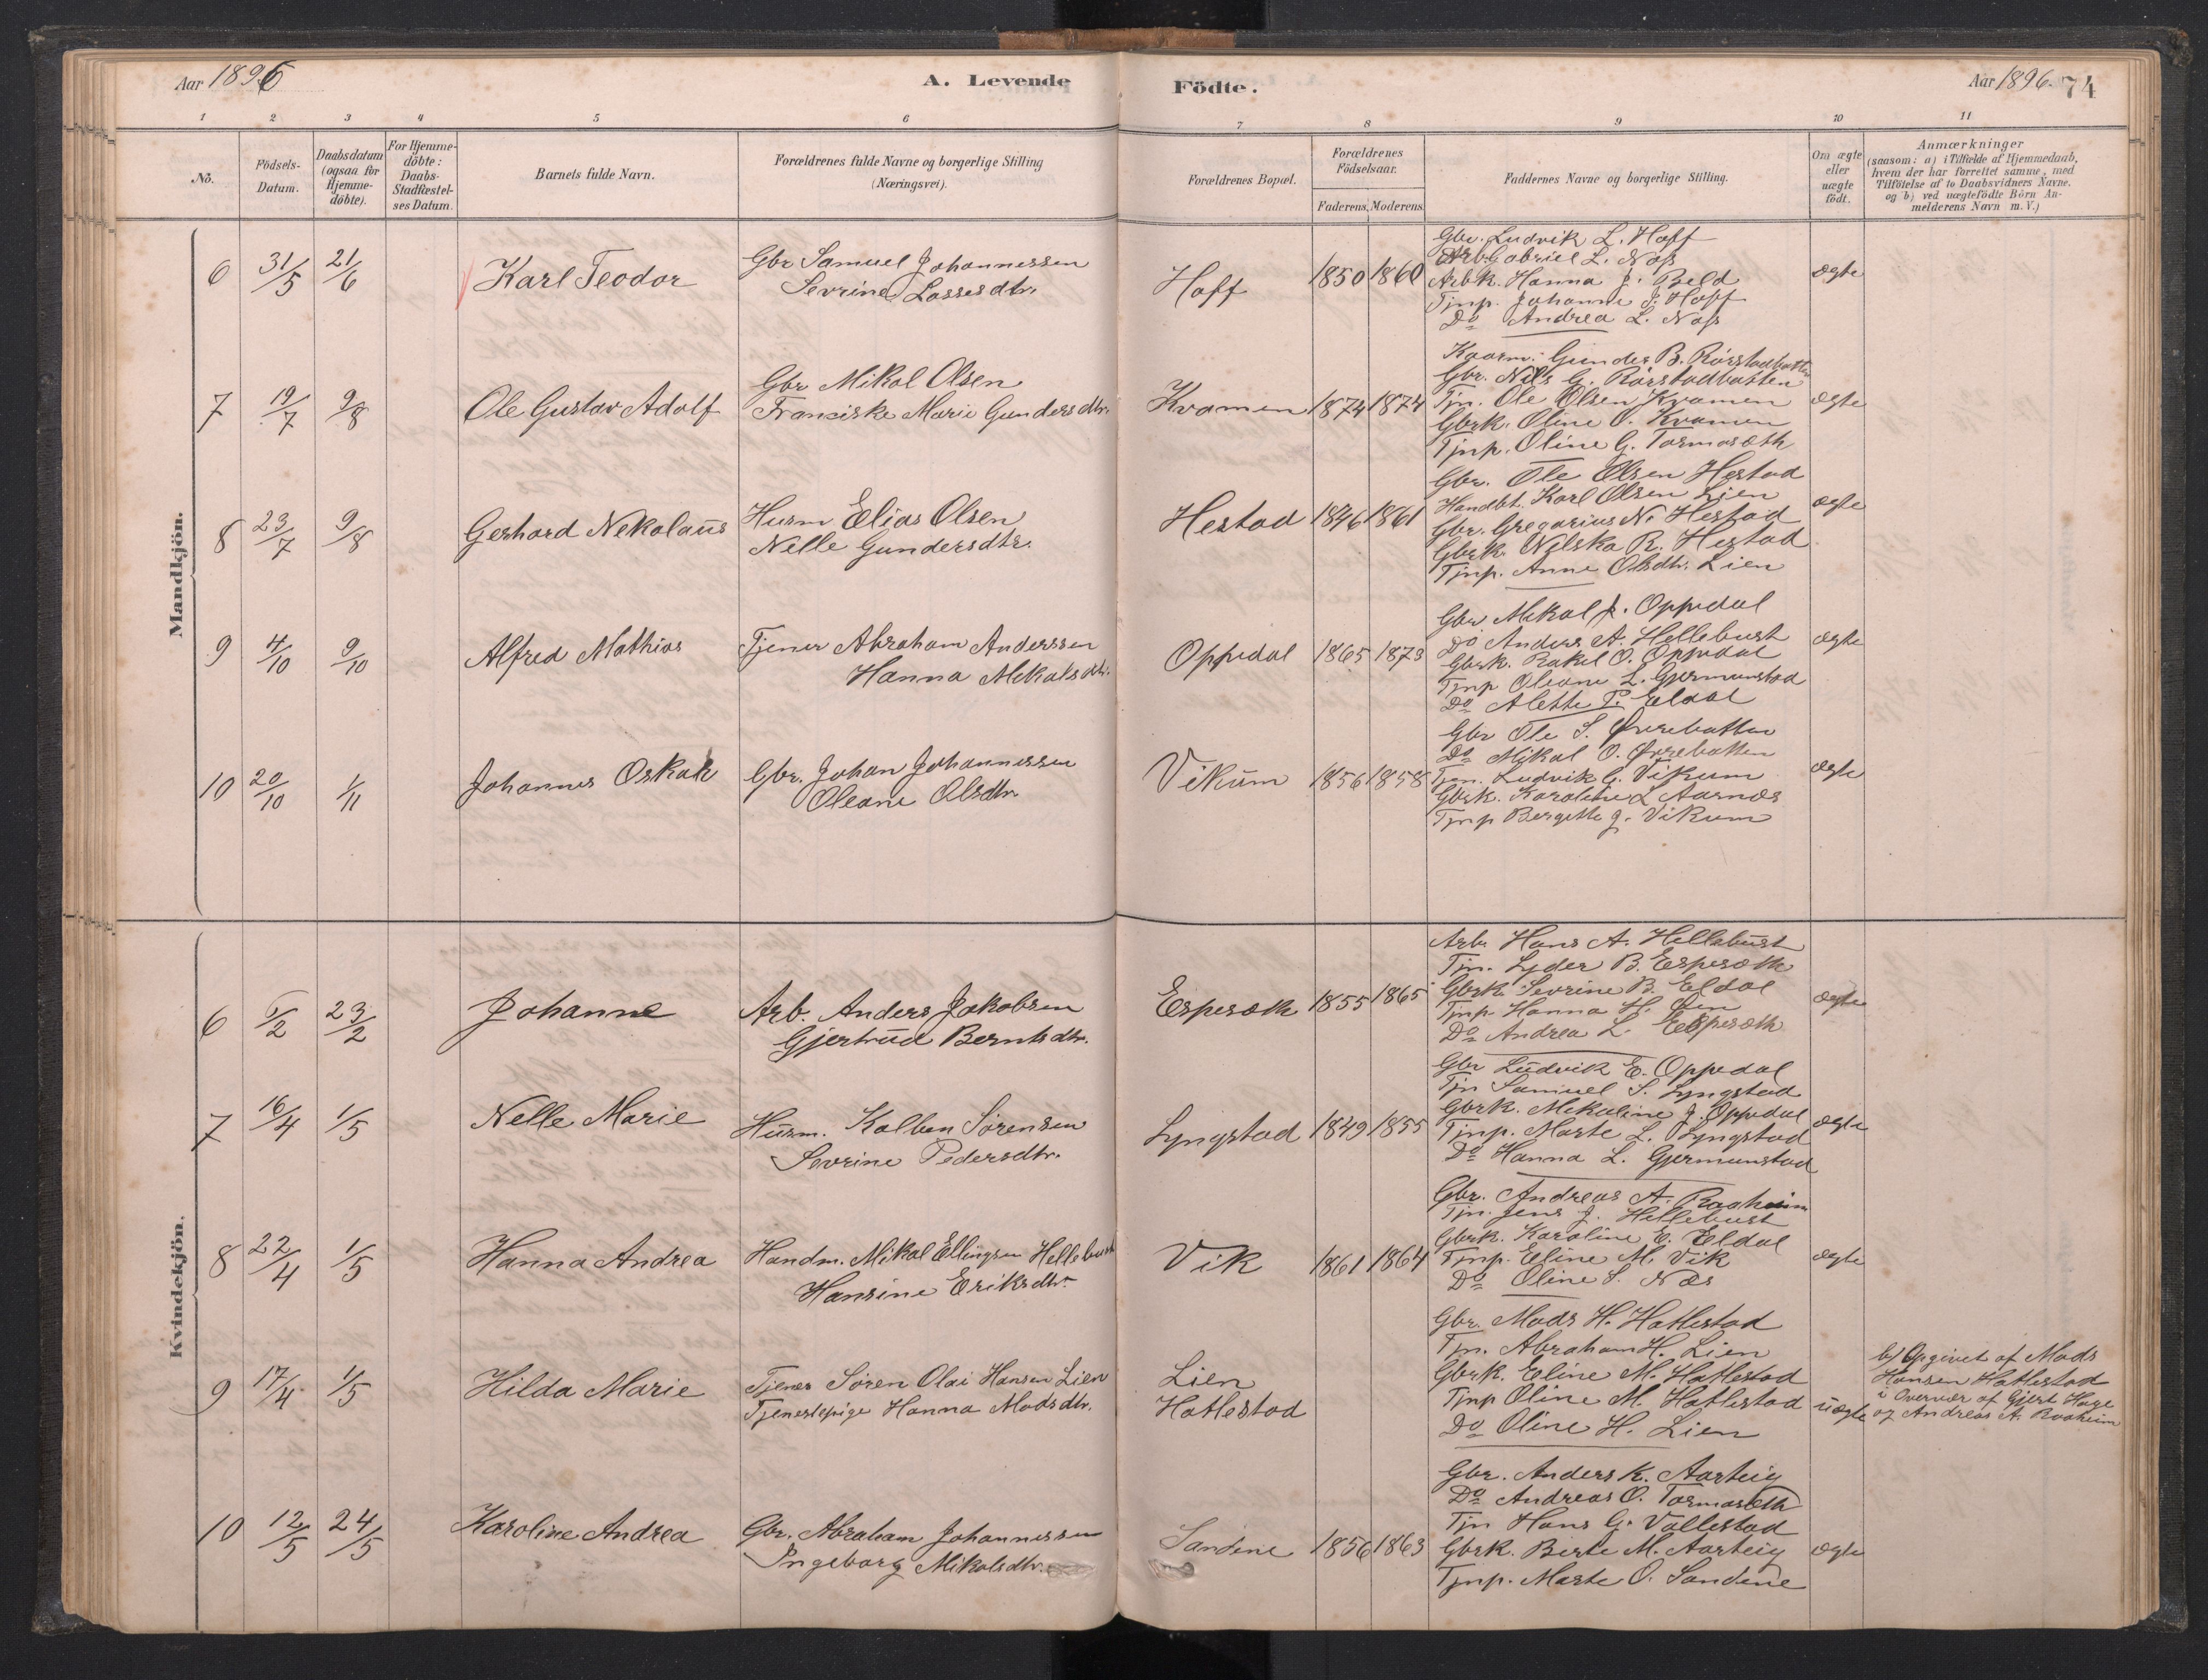 Aar 1896
A. Levende
Födte.
Aar 1896.
74
1 2 3 4 5 6 7 8 9 10 11
No.
Födsels-Datum.
Daabsdatum (ogsaa for Hjemme-döbte).
For Hjemme-döbte: Daabs-Stadfæstel-ses Datum.
Barnets fulde Navn.
Forældrenes fulde Navne og borgerlige Stilling
(Næringsvei).
Forældrenes Bopæl.
Forældrenes Födselsaar.
Faderens. Moderens.
Faddernes Navne og borgerlige Stilling.
Om ægte eller uægte födt.
Anmærkninger
(saasom: a) i Tilfælde af Hjemmedaab,
hvem der har forrettet samme, med
Tilföielse af to Daabsvidners Navne.
og b) ved uægtefödte Börn An-
melderens Navn m. V.)
Mandkjön.
6 31/5 21/6 Karl Teodor
Gbr Samuel Johannessen
Sevrine Lassesdtr.
Hoff 1850 1860
Gbr. Ludvik L. Hoff
Arb. Gabriel L. Nas
Arbk. Hanna J. Beld
Tjnp. Johanne J. Hoff
Do Andrea L. Nas
ægte
7 19/7 9/8 Ole Gustav Adolf
Gbr Mikal Olsen
Franciske Marie Gundersdtr.
Kvamen 1874 1874
Kaarm. Gunder B. Rörstadbotten
Gbr. Nils G. Rörstadbotten
Tjn. Ole Olsen Kvamen
Gbrk. Oline O. Kvamen
Tjnp. Oline G. Tormosæth
ægte
8 23/7 9/8 Gerhard Nekolaus
Husm Elias Olsen
Nelle Gundersdtr.
Hestad 1846 1861
Gbr. Ole Olsen Hestad
Handbt. Karl Olsen Lien
Gbr. Gregorius N. Hestad
Gbrk. Nilska R. Hestad
Tjnp. Anne Olsdtr. Lien
ægte
9 4/10 9/10 Alfred Mathias
Tjener Abraham Anderssen
Hanna Mekalsdtr.
Oppedal 1865 1873
Gbr Mekal J. Oppedal
Do Anders A. Hellebust
Gbrk. Rakel O. Oppedal
Tjnp Oleane L. Gjermunstad
Do Alette P. Eldal
ægte
10 20/10 1/11 Johannes Oskar
Gbr. Johan Johannessen
Oleane Olsdtr.
Vikum 1856 1858
Gbr Ole S. Övrebotten
Do Mikal O. Övrebotten
Tjen. Ludvik G. Vikum
Gbrk. Karoline L Aarnæs
Tjnp Bergitte J. Vikum
ægte
Kvindekjön.
6 5/2 23/2 Johanne
Arb. Anders Jakobsen
Gjertrud Berntsdtr.
Espesæth 1855 1865
Arb. Hans A. Hellebust
Tjn. Lyder B. Espesæth
Gbrk. Sevrine B. Eldal
Tjnp. Hanna H.
Do Andrea L. Espesæth
ægte
7 16/4 1/5 Nelle Marie
Husm. Kolben Sörensen
Sevrine Pedersdtr.
Lyngstad 1849 1855
Gbr Ludvik E. Oppedal
Tjn Samuel S. Lyngstad
Gbrk. Mekaline J. Oppedal
Tjnp. Marte L. Lyngstad
Do Hanna L. Gjermunstad
ægte
8 22/4 1/5 Hanna Andrea
Handm. Mikal Ellingsen Hellebust
Hansine Eriksdtr.
Vik 1861 1864
Gbr. Andreas A. Roaheim
Tjn. Jens J. Hellebust
Gbrk. Karoline E. Eldal
Tjnp. Eline M. Vik
Do Oline S. Næs
ægte
9 17/4 1/5 Hilda Marie
Tjener Sören Olai Hansen Lien
Tjenestepige Hanna Madsdtr.
Lien
Hatlestad
Gbr. Mads H. Hatlestad
Tjn. Abraham H. Lien
Gbrk. Eline M. Hatlestad
Tjnp Oline M. Hatlestad
Do Oline H. Lien
uægte
b) Opgivet af Mads
Hansen Hatlestad
i Overvær af Gjert Hage
og Andreas A. Roaheim
10 12/5 24/5 Karoline Andrea
Gbr. Abraham Johannessen
Ingeborg Mikalsdtr.
Sandene 1856 1863
Gbr. Anders K. Aarteig
Do Andreas O. Tormosæth
Tjn Hans G. Vallestad
Gbrk. Berte M. Aarteig
Tjnp. Marte O. Sandene
ægte